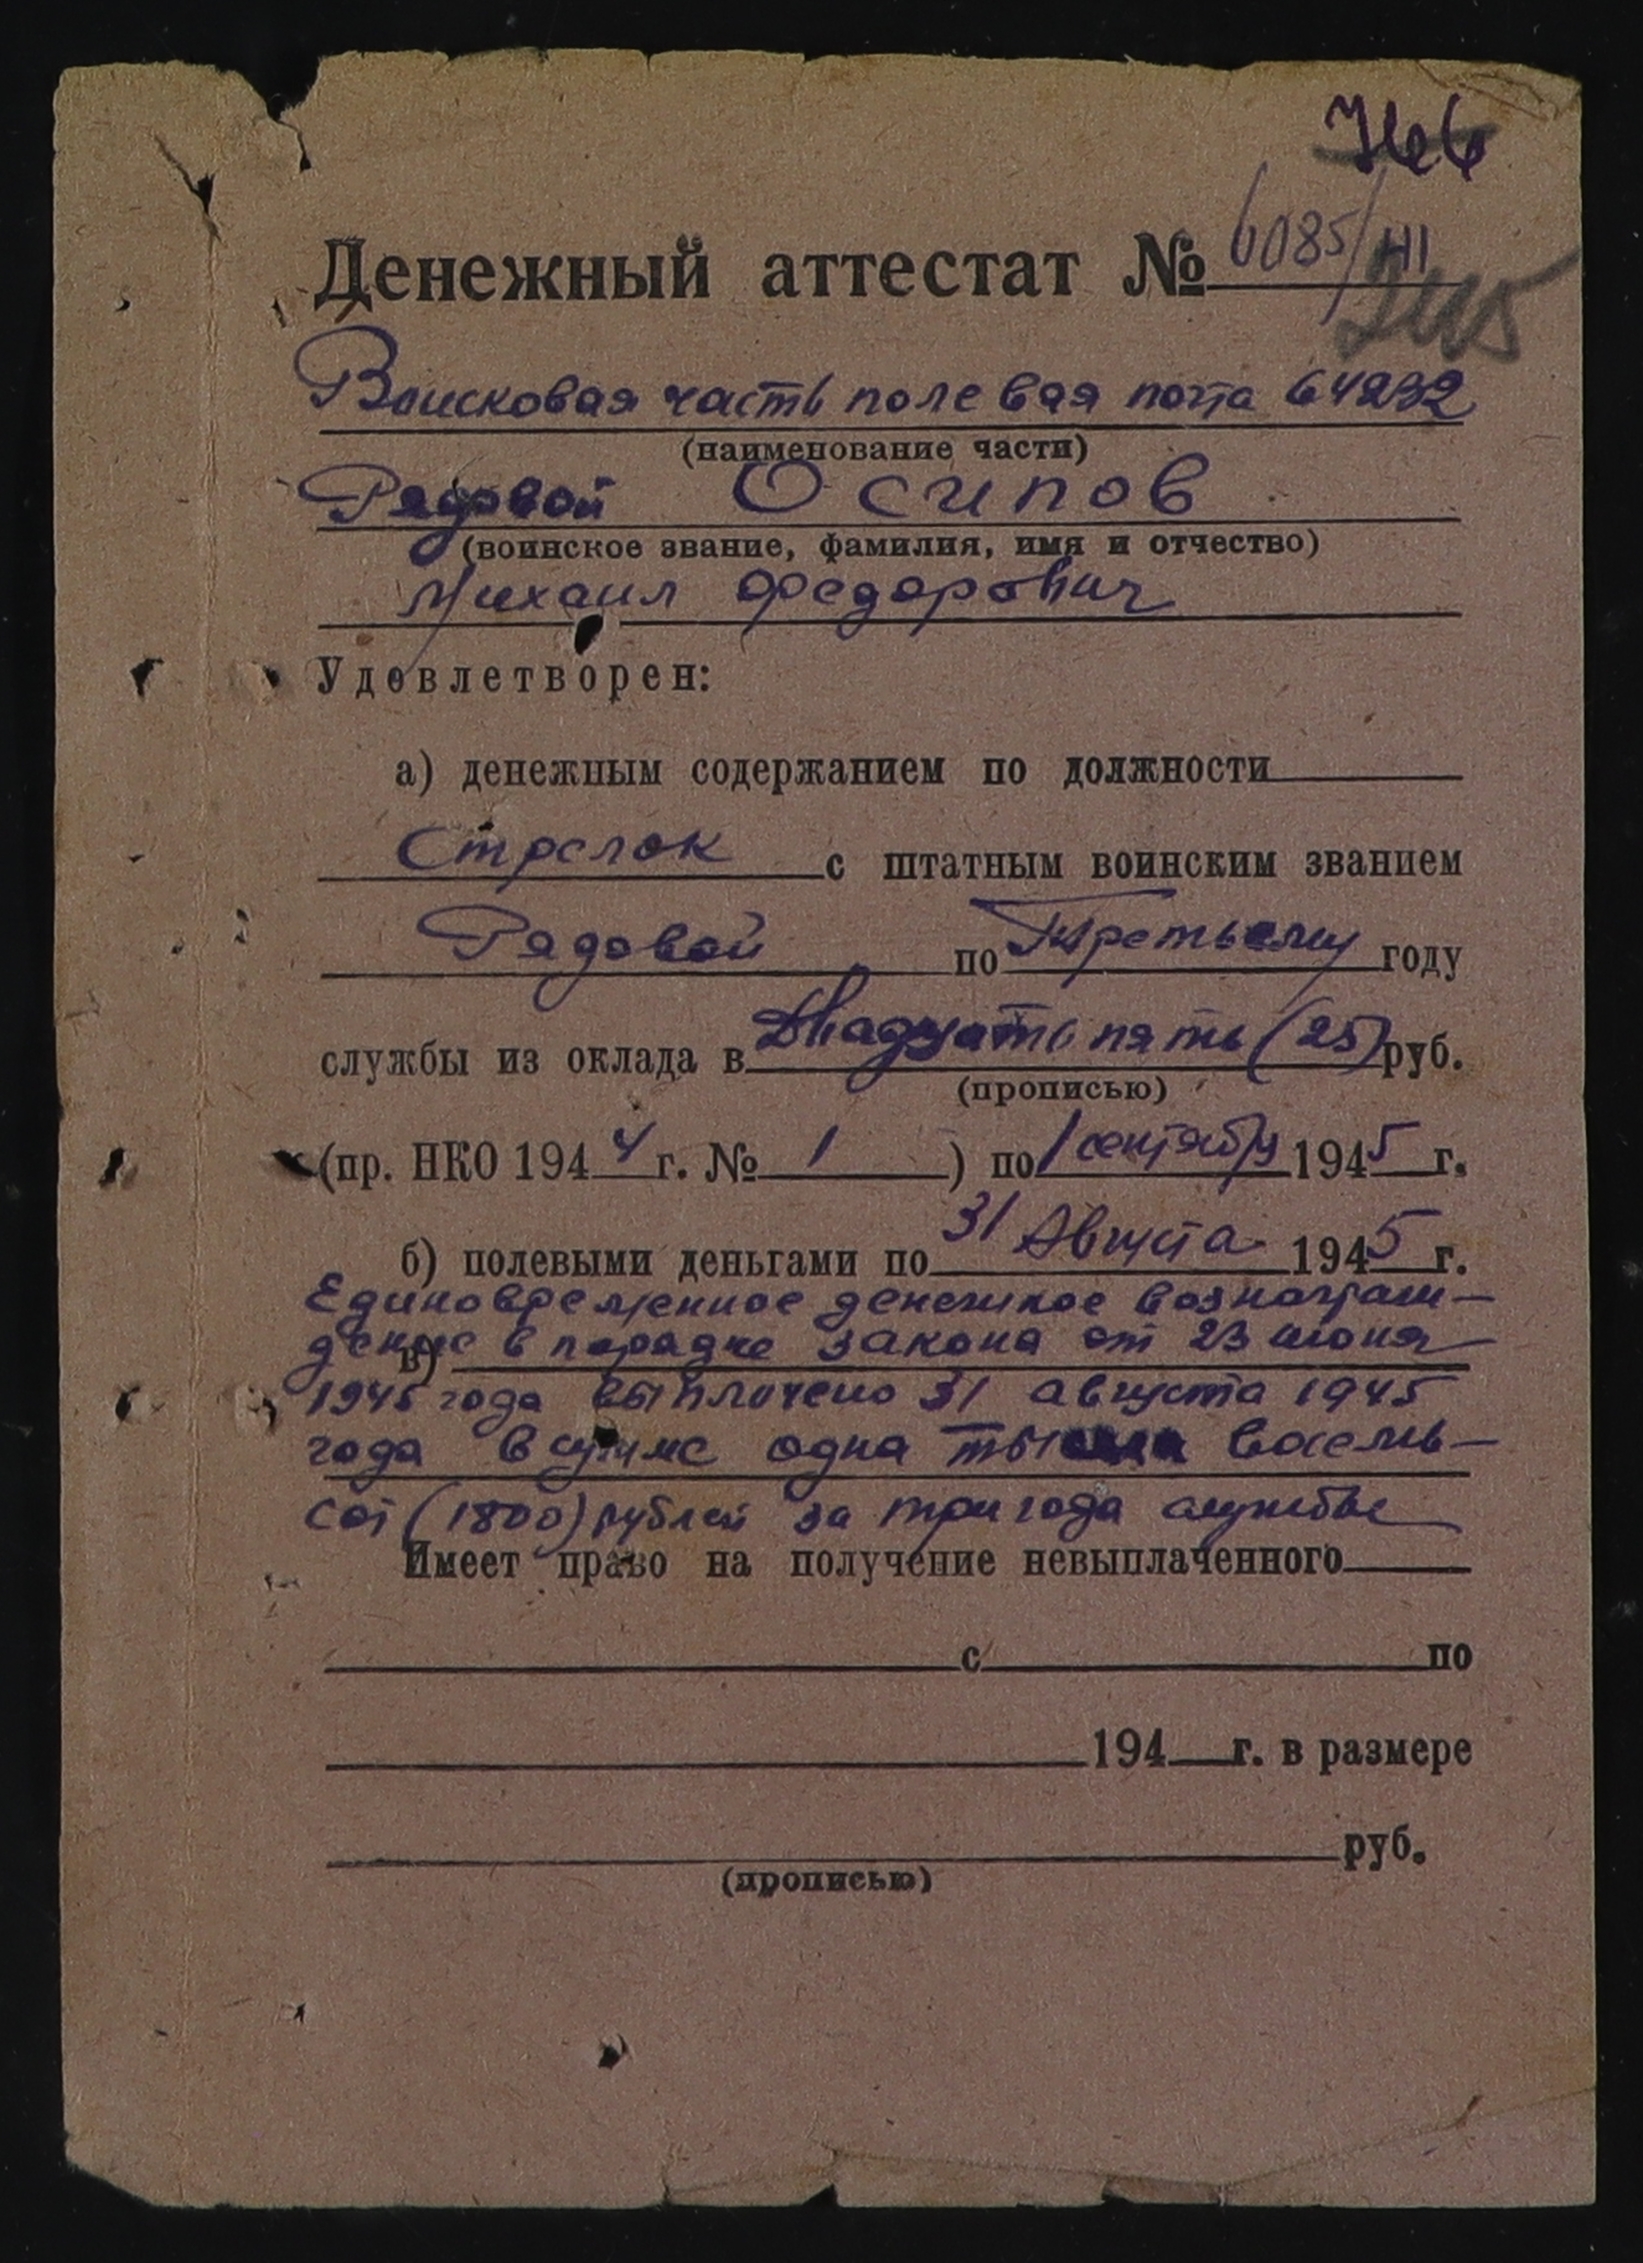 Денежный аттестат № 6085/
Воисковая часть полевая почта 64292
(наименование части)
Рядовой Осипов
(воинское звание, фамилия, имя и отчество)
Михаил Федорович
Удовлетворен:
а) денежным содержанием по должности
Стрелок с штатным воинским званием
Рядовой по Третьему году
службы из оклада в Двадцать пять (25) руб.
(прописью)
(пр. НКО 1944 г. № 1 ) по 1 сентября 1945 г.
б) полевыми деньгами по 31 Августа 1945 г.
Единовременное денежное вознаграж-
дение в порядке закона от 23 июня
в)
1945 года выплачено 31 августа 1945
года в сумме одна тысяча восемь-
сот (1800) рублей за три года службы
Имеет право на получение невыплаченного
с по
194 г. в размере
руб.
(прописью)